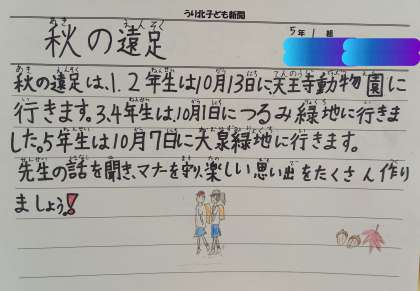 うり北子ども新聞
秋の遠足
5年1組
秋の遠足は、1.2年生は10月13日に天王寺動物園に
行きます。3.4年生は、10月1日につるみ緑地に行きま
した。5年生は10月7日に大泉緑地に行きます。
先生の話を聞き、マナーを守り、楽しい思い出をたくさん作り
ましょう!